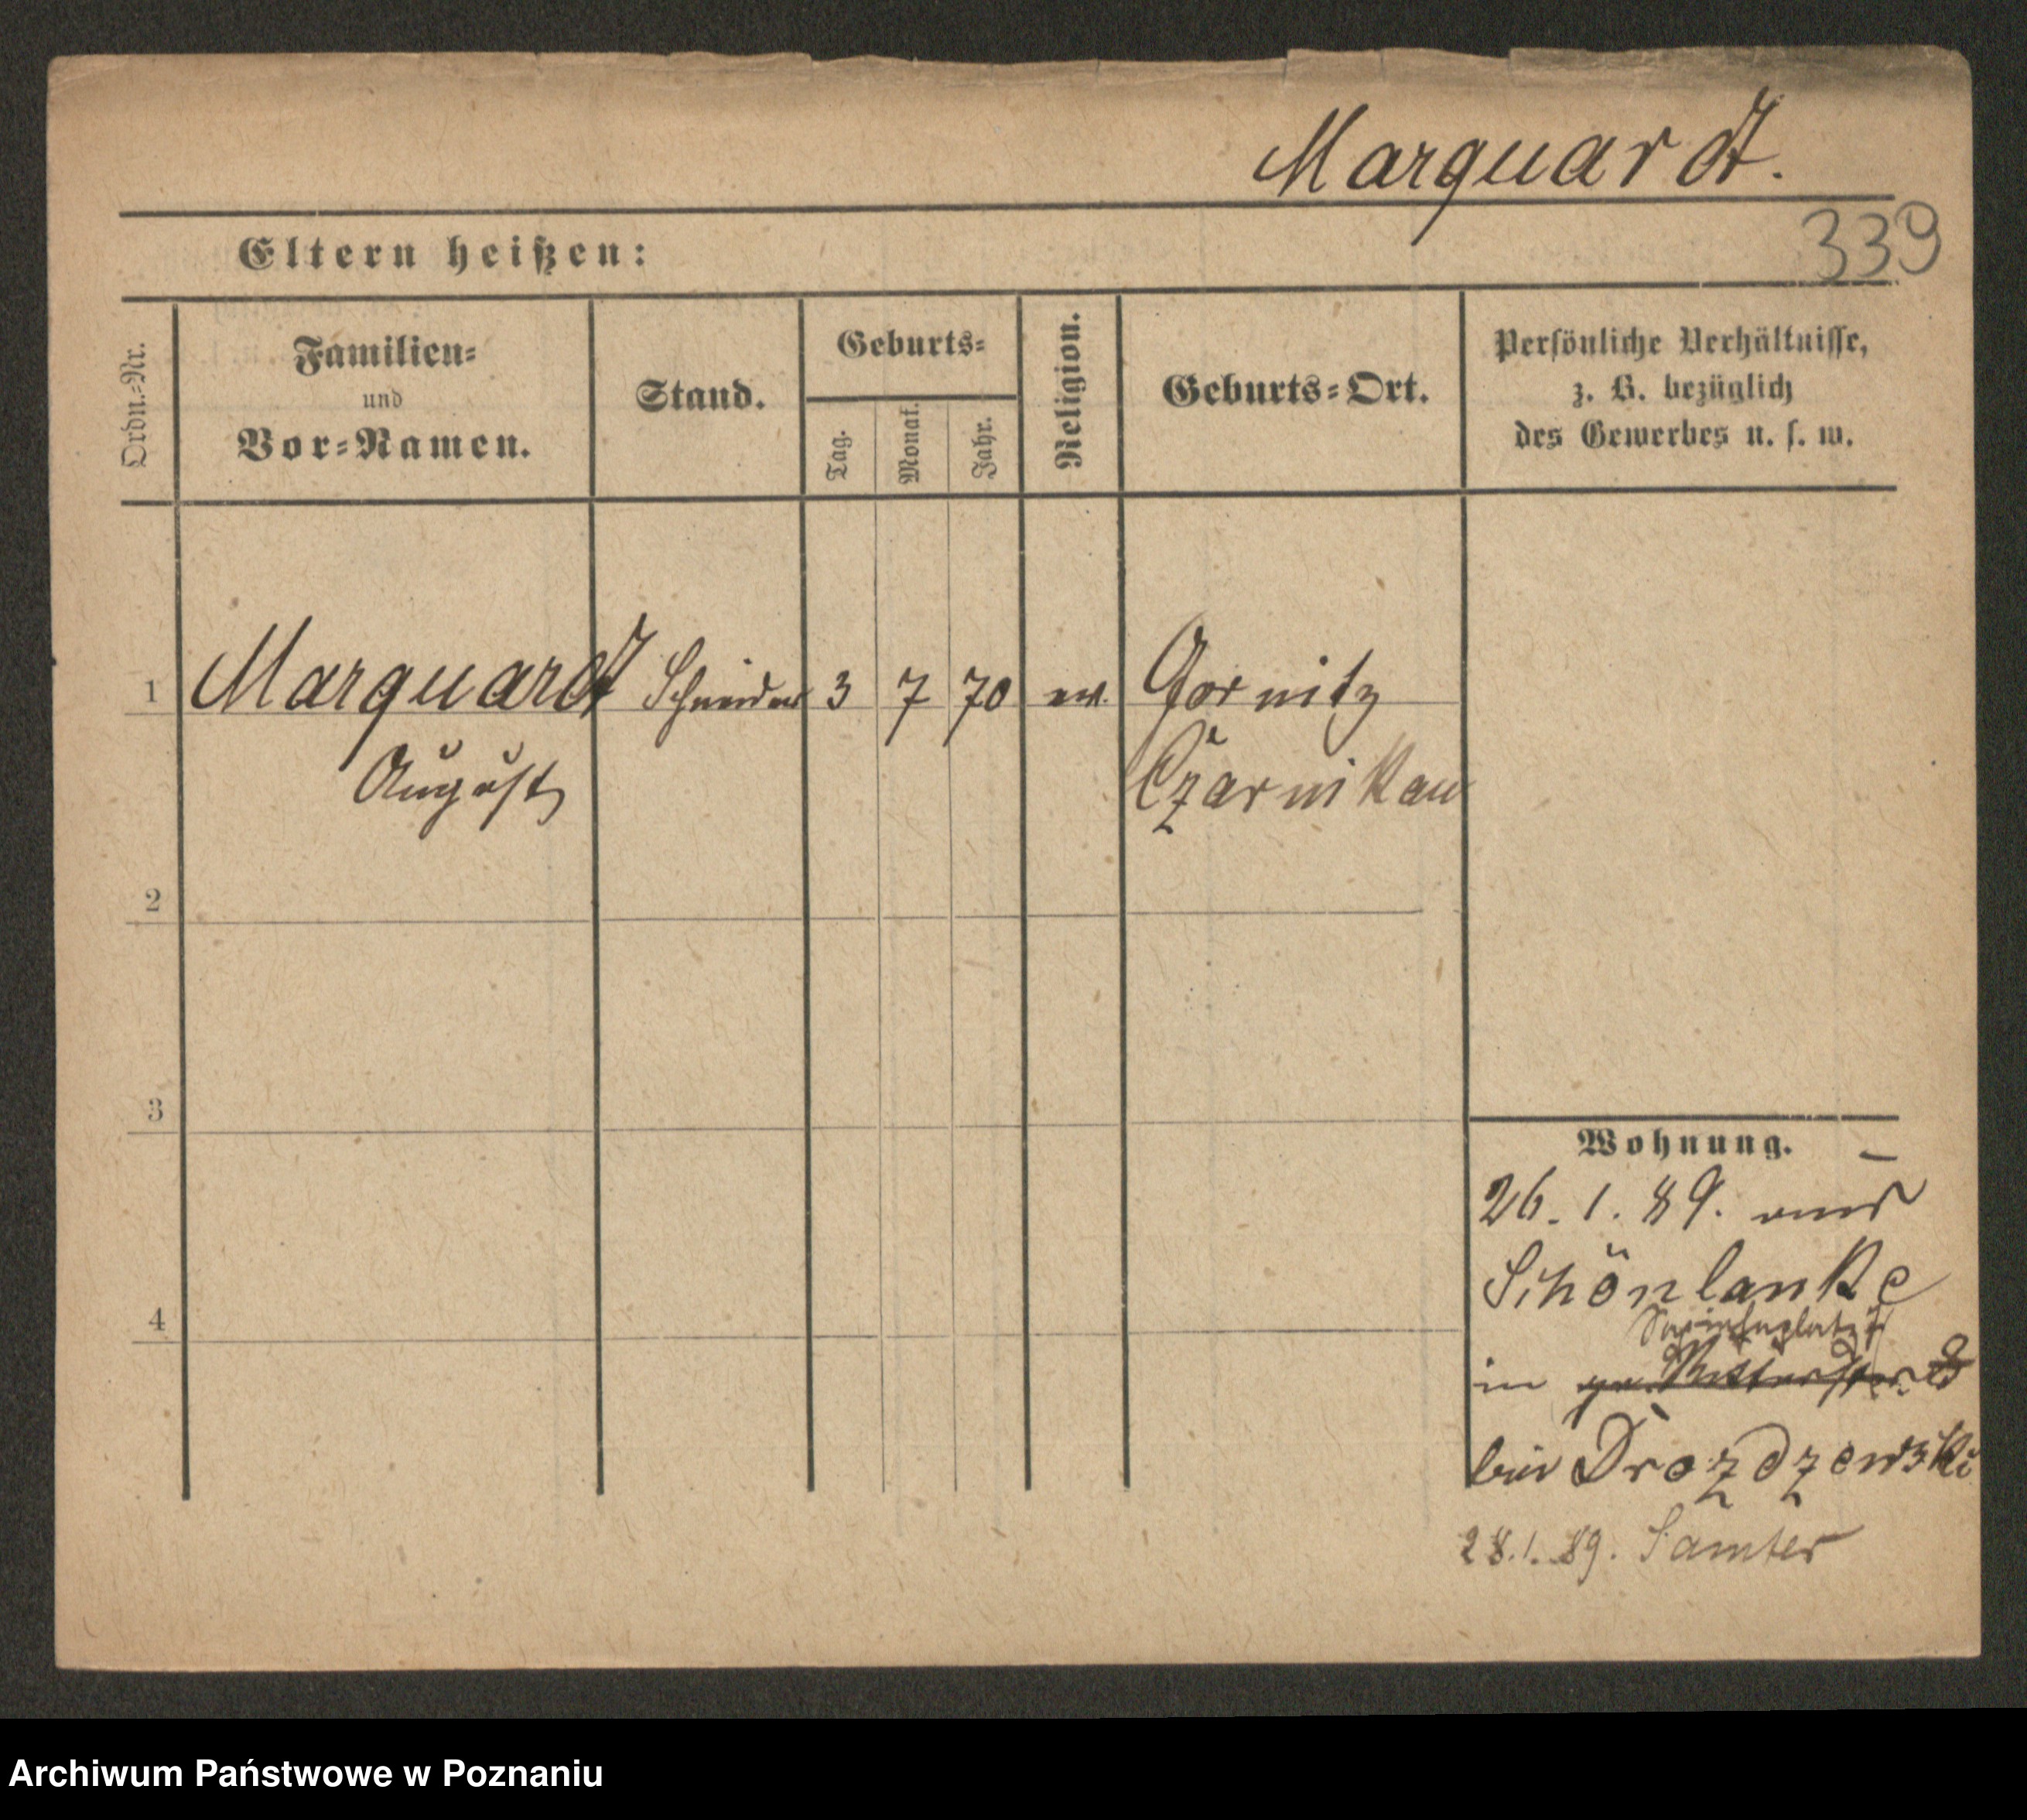 Marquardt.
339
Eltern heißen:
Ordn.-Nr.
Familien-
und
Vor-Namen.
Stand.
Geburts-
Tag.
Monat.
Jahr.
Religion.
Geburts-Ort.
Persönliche Verhältnisse,
z. B. bezüglich
des Gewerbes u. s. w.
1 Marquardt Schneider 3 7 70 ev. Gornitz
August Czarnikau
2
3
4
Wohnung.
26. 1. 89. aus
Schönlanke
in
bei Drozdzewski
28. 1. 89. Samter
Archiwum Państwowe w Poznaniu